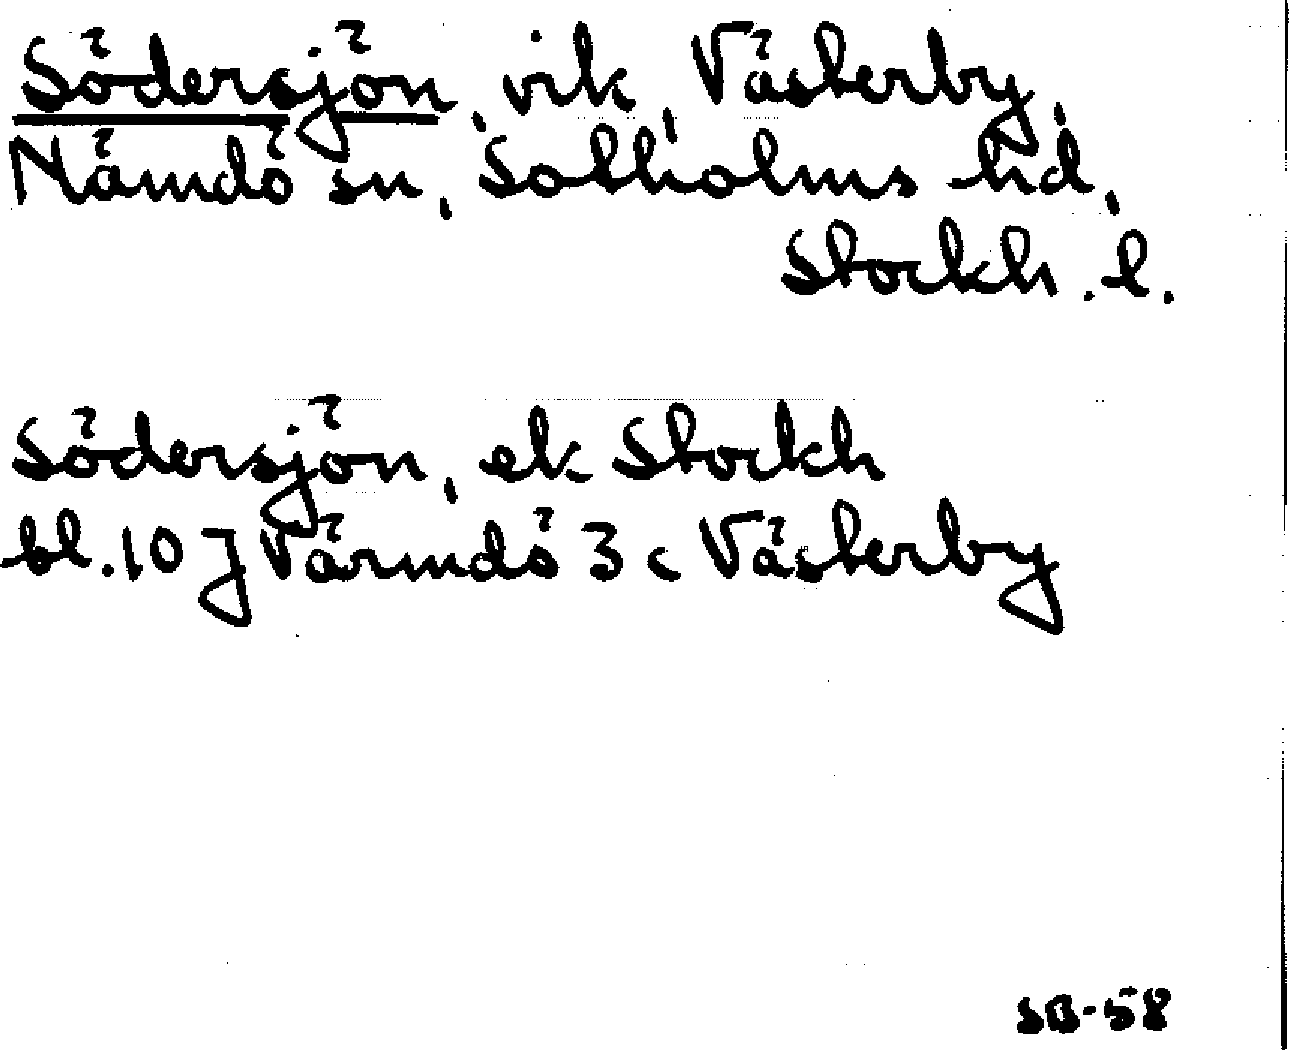 Södersjön, vik, Västerby,
Nämdö sn, Sotholms hd,
Stockh. l.
Södersjön, ek Stockh
bl. 10 J Värmdö 3 c Västerby
SB-58